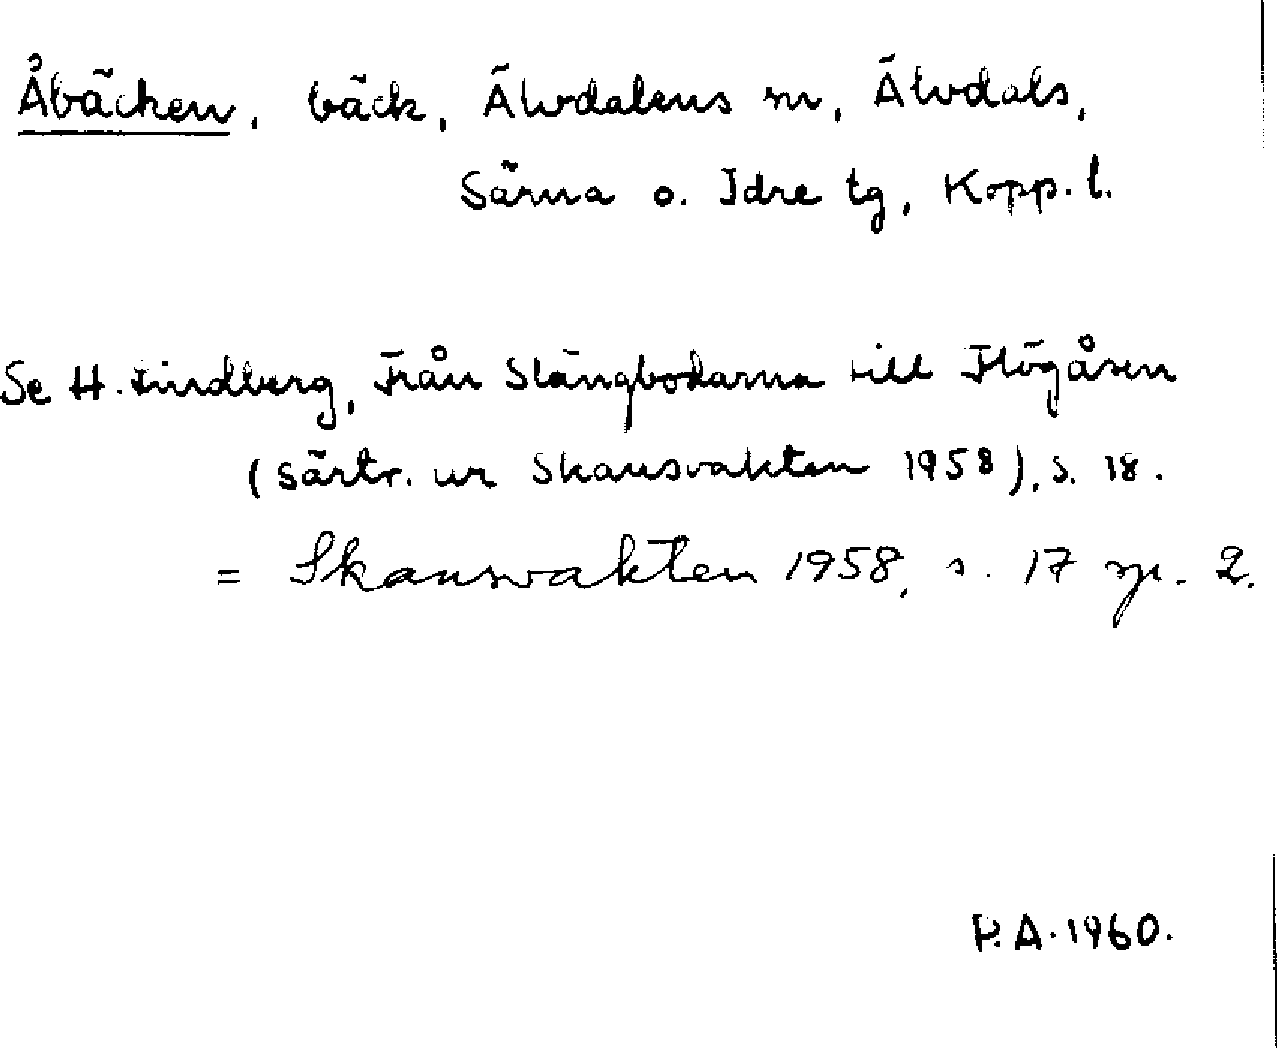 Åbäcken, bäck, Älvdalens sn, Älvdals,
Särna o. Idre tg, Kopp. l.
Se H. Lindberg, Från Slängbodarna till Högåsen
(särtr. ur Skansvakten 1958), s. 18.
= Skansvakten 1958, s. 17 sp. 2.
P.A. 1960.